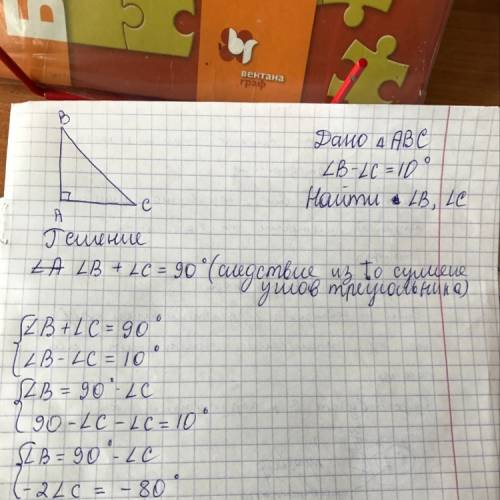 Б
вентана
граф
B
A
C
Дано △ ABC
∠B-∠C=10°
Найти ∠B, ∠C
Решение
∠A ∠B + ∠C = 90° (следствие из То сумме
углов треугольника)
∠B+∠C = 90°
∠B-∠C = 10°
∠B = 90°-∠C
90-∠C-∠C=10°
∠B= 90°-∠C
-2∠C = -80°